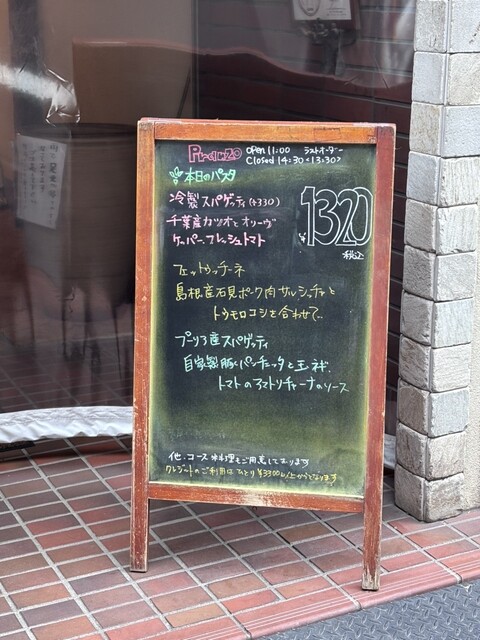 Pranzo open 11:00 ラストオーダー
Closed 14:30 <13:30>
本日のパスタ
冷製スパゲッティ(+330)
千葉産カツオとオリーヴ
ケッパー、フレッシュトマト
¥1320
税込
フェットゥッチーネ
島根産石見ポーク肉サルシッチャと
トウモロコシを合わせて..
プーリア産スパゲッティ
自家製豚パンチェッタと玉ネギ、
トマトのアマトリチャーナのソース
他、コース料理もご用意しております
クレジットのご利用はひとり¥3300以上からとなります